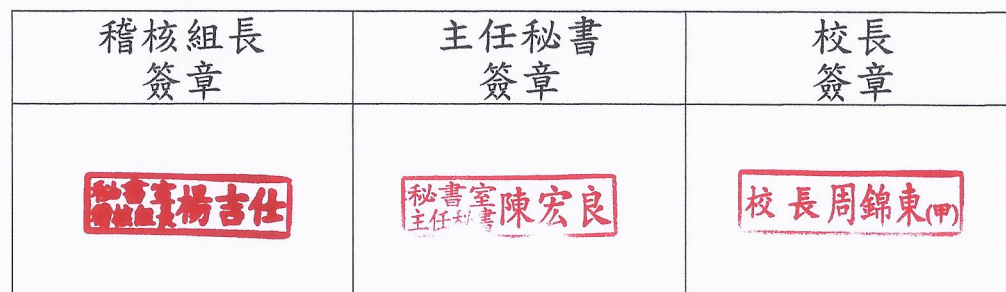 稽核組長
簽章
主任秘書
簽章
校長
簽章
秘書室
稽核組長
楊吉仕
秘書室
主任秘書
陳宏良
校長周錦東(甲)